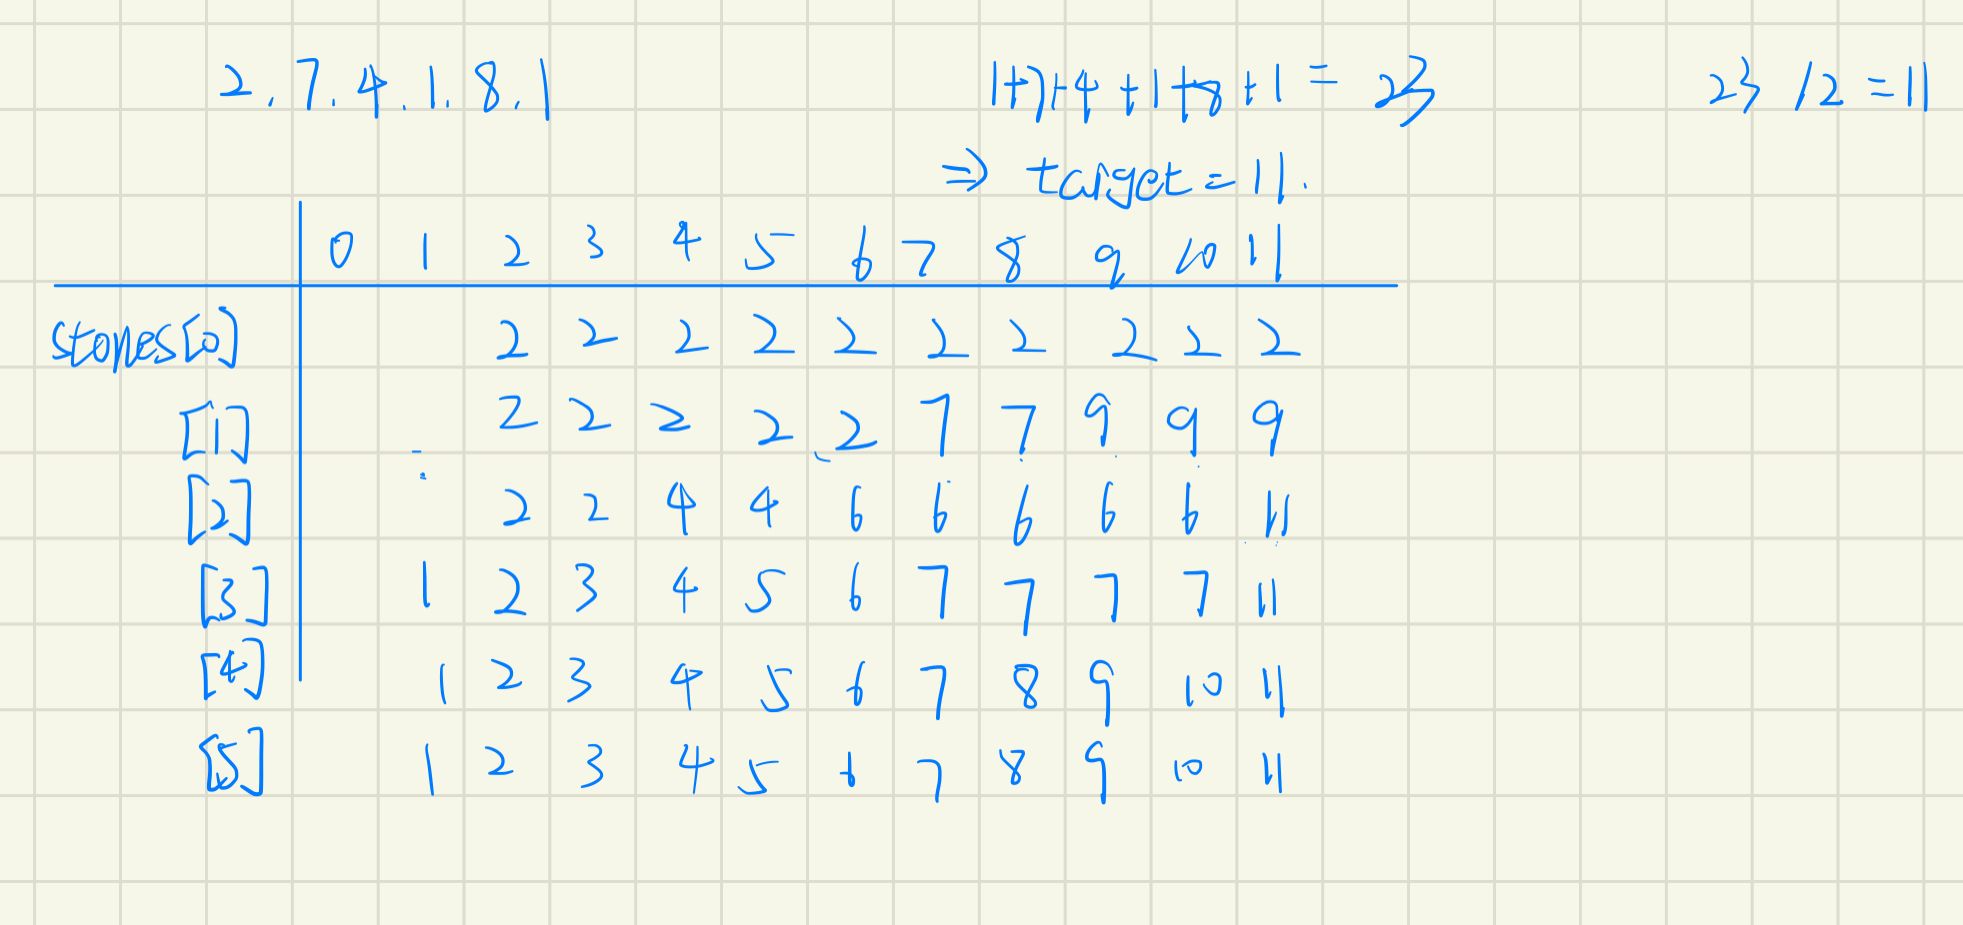 2.7.4.1.8.1 1+7+4+1+8+1=23 23/2=11
⇒ target=11.
0 1 2 3 4 5 6 7 8 9 10 11
stones[0] 2 2 2 2 2 2 2 2 2 2
[1] 2 2 2 2 2 7 7 9 9 9
[2] 2 2 4 4 6 6 6 6 6 11
[3] 1 2 3 4 5 6 7 7 7 7 11
[4] 1 2 3 4 5 6 7 8 9 10 11
[5] 1 2 3 4 5 6 7 8 9 10 11